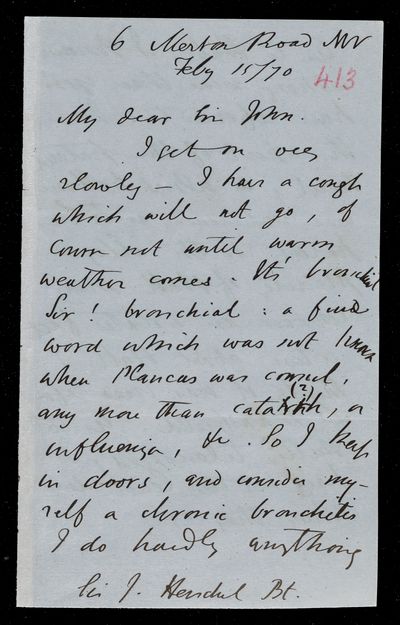 6 Merton Road NW
Feby 15/70
413
My dear Sir John.
I get on very
slowly – I have a cough
which will not go, of
course not until warm
weather comes. It's bronchial
Sir! bronchial: a fine
word which was not known
when Plancus was consul,
any more than catarrh, (?) or
influenza, &c. So I keep
in doors, and consider my-
self a chronic bronchitis
I do hardly anything
Sir J. Herschel Bt.